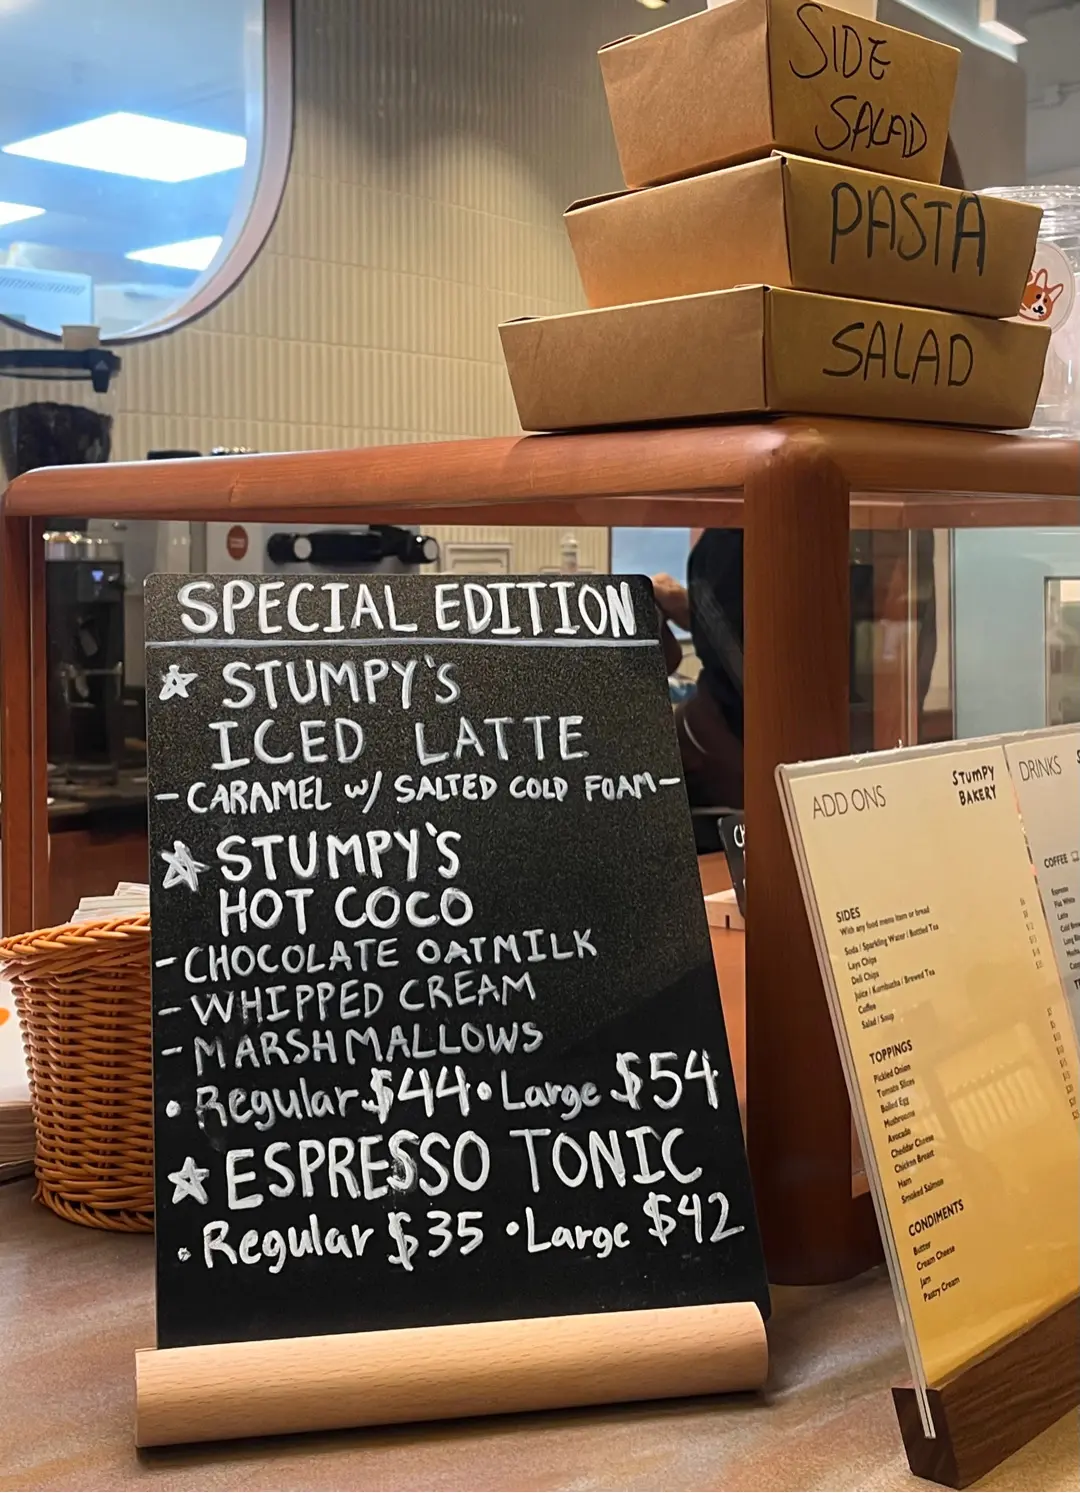 SIDE
SALAD
PASTA
SALAD
SPECIAL EDITION
STUMPY'S
ICED LATTE
-CARAMEL w/ SALTED COLD FOAM-
STUMPY'S
HOT COCO
-CHOCOLATE OATMILK
-WHIPPED CREAM
-MARSHMALLOWS
• Regular $44 • Large $54
ESPRESSO TONIC
• Regular $35 • Large $42
ADD ONS
STUMPY
BAKERY
SIDES
With any food menu item or bread
Soda / Sparkling Water / Bottled Tea
Lays Chips
Deli Chips
Juice / Kombucha / Brewed Tea
Coffee
Salad / Soup
TOPPINGS
Pickled Onion
Tomato Slices
Boiled Egg
Mushrooms
Avocado
Cheddar Cheese
Chicken Breast
Ham
Smoked Salmon
CONDIMENTS
Butter
Cream Cheese
Jam
Pastry Cream
DRINKS
COFFEE
Espresso
Flat White
Latte